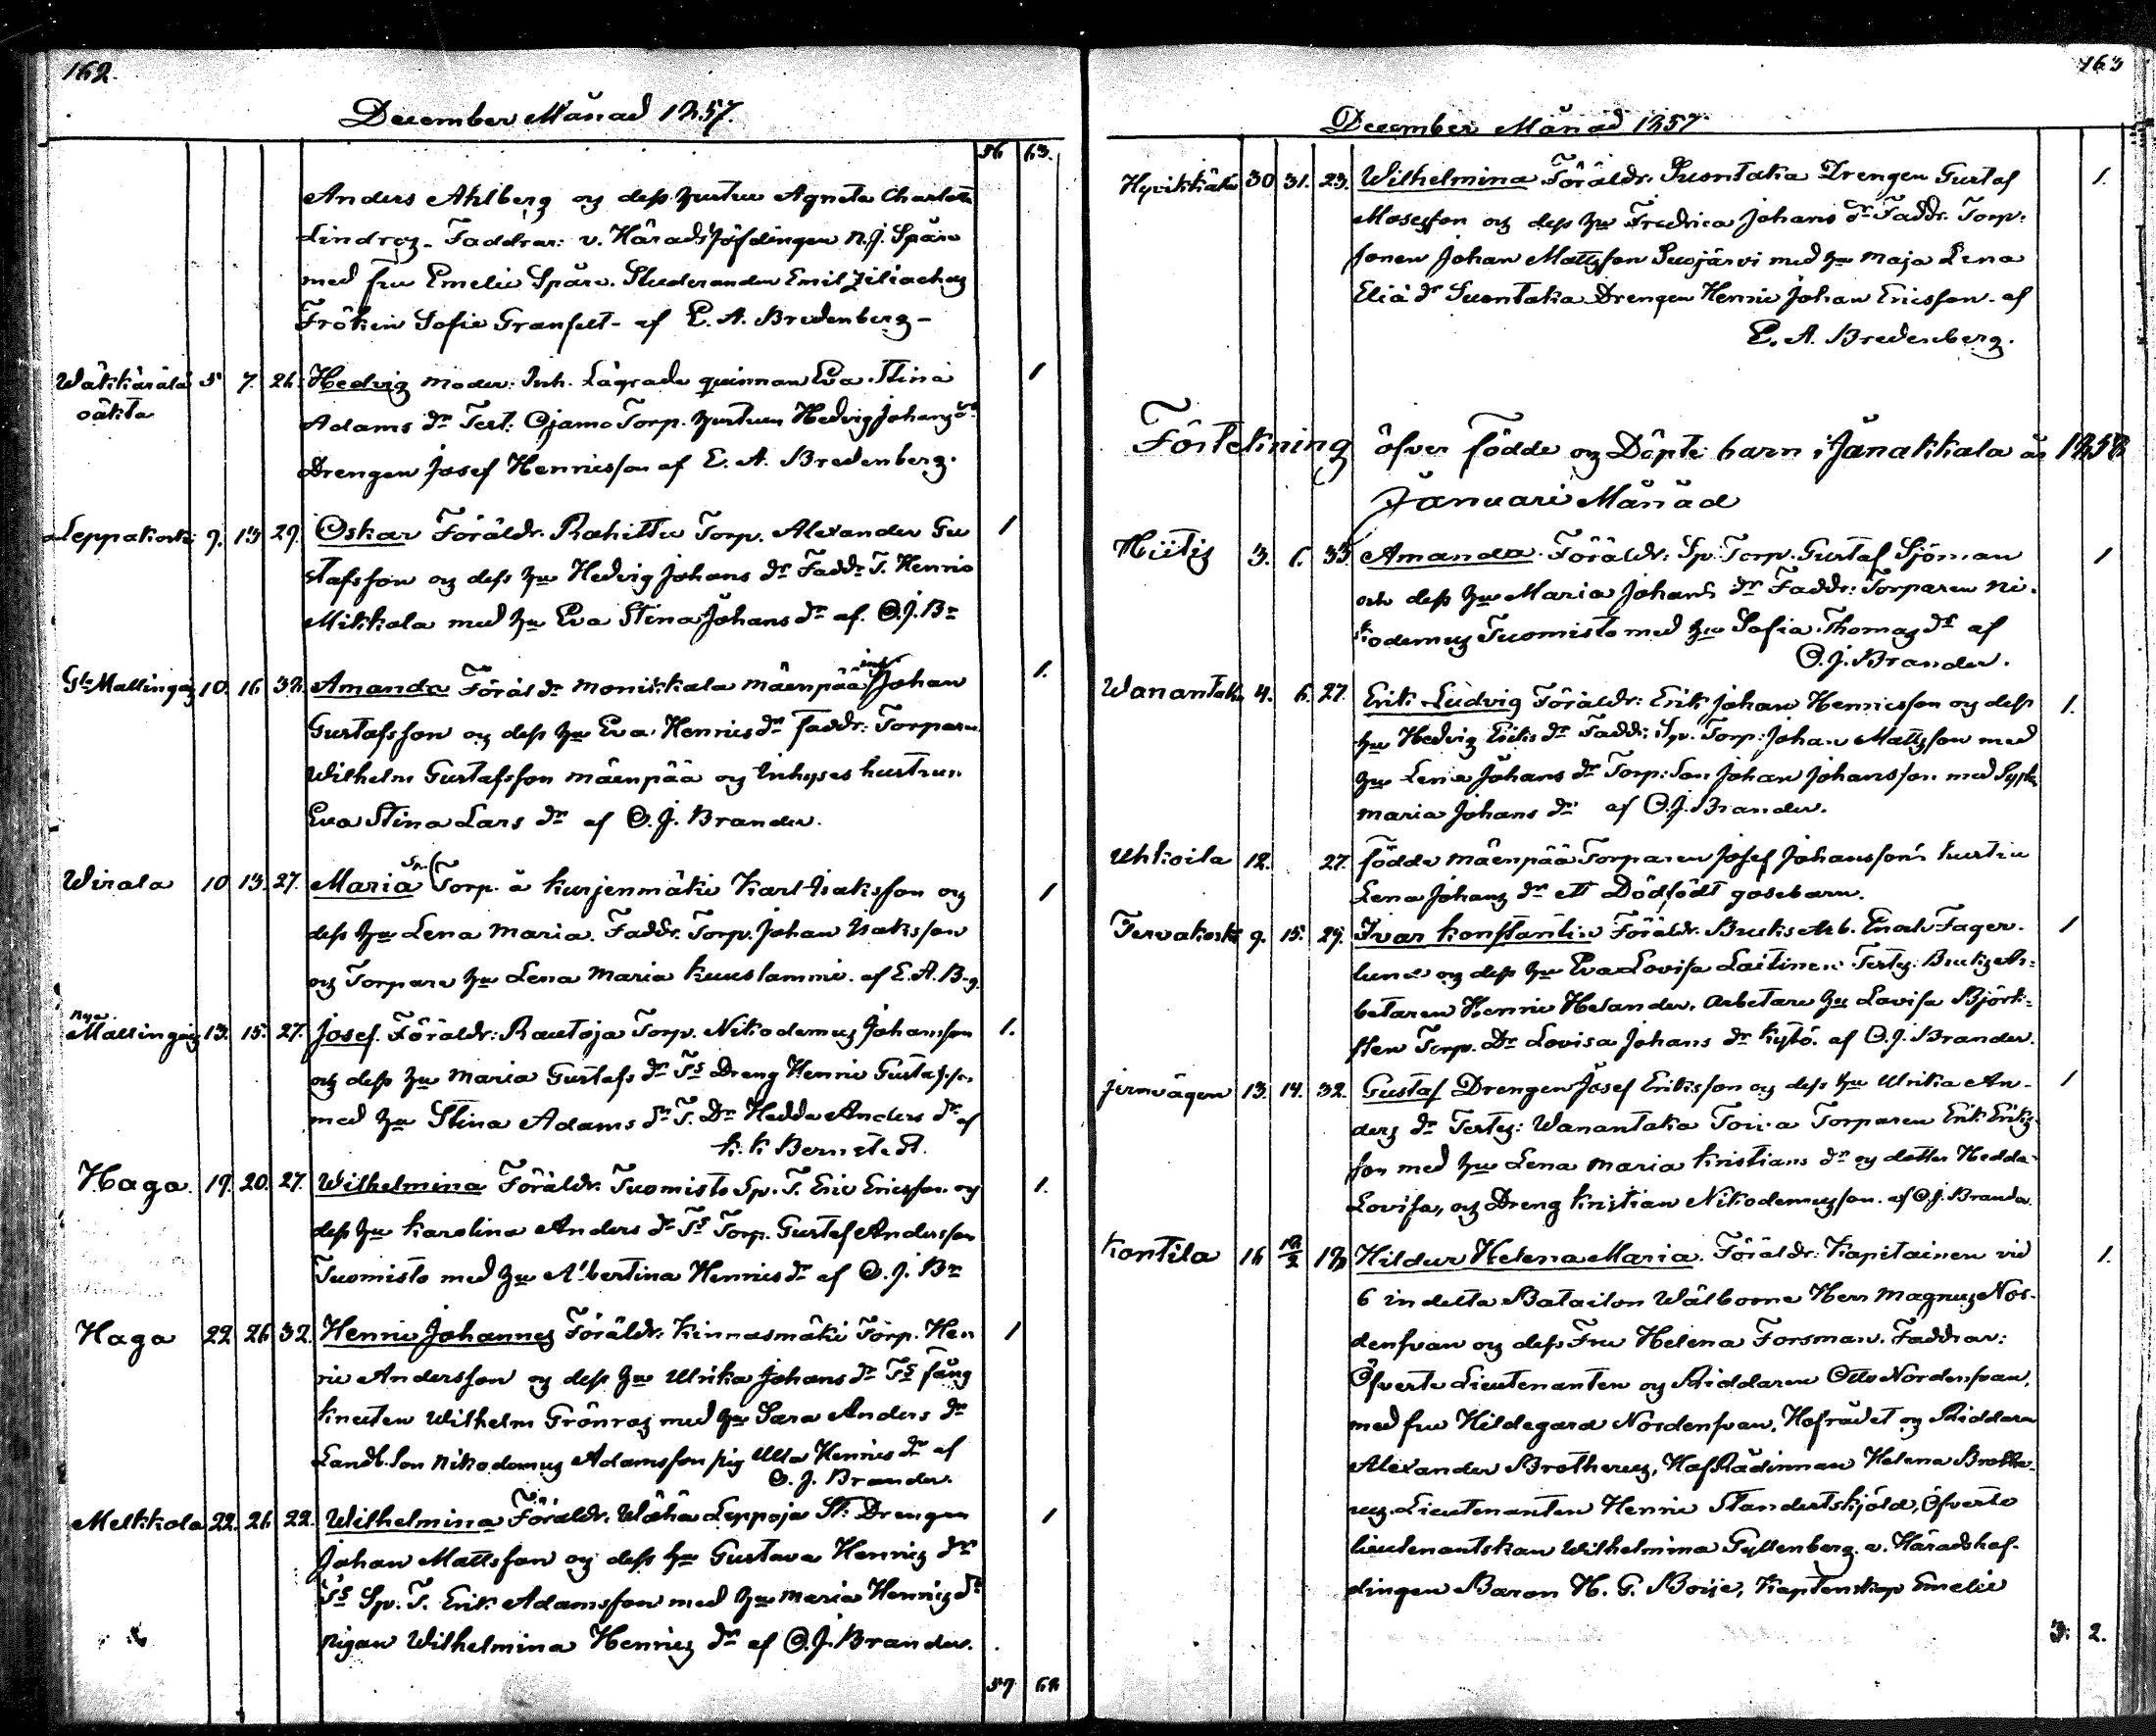 162.
December Månad 1857.
56 63.
Anders Ahlberg og dess hustru Agneta Charlotta
Lindroz. Faddrar: v. Häradshöfdingen N. J. Spåre
med fru Emelie Spåre. Studeranden Emil Ziliachus
Fröken Sofie Granfelt - af E. A. Bredenberg -
Wäkkärälä 5 7. 26. Hedvig Moder: Inh. Lägrade quinnan Eva Stina 1
oäkta Adams dr Test. Ojamo Torp. hustrun Hedvig Johans dr
Drengen Josef Henricsson af E. A. Bredenberg.
Leppakoski 9. 13 29. Oskar Föräldr. Rahittu Torp. Alexander Gu 1
stafsson og dess hu Hedvig Johans dr Faddr T. Henric
Mikkola med hu Eva Stina Johans dr af. O. J. Br
Gla Mallinga 10. 16 32. Amanda Föräldr Monikkala Mäenpää inh. Johan 1.
Gustafsson og dess hu Eva Henrics dr faddr: Torparen
Wilhelm Gustafsson Mäenpää og Inhyses hustrun
Eva Stina Lars dr af O. J. Brander.
Wirala 10 13. 27. Maria Sp. Torp. å Kurjenmäki Karl Isaksson og 1
dess hu Lena Maria. Faddr. Torp. Johan Isaksson
og Torpare hu Lena Maria Kuuslammi. af E. A. B-g.
Nya
Mallinga 13. 15. 27. Josef. Föräldr: Rautoja Torp. Nikodemus Johansson 1.
og dess hu Maria Gustafs dr Ts Dreng Henric Gustafsson
med hu Stina Adams dr T. Dr Hedda Anders dr af
K. K. Bernstedt.
Haga. 19. 20. 27. Wilhelmina Föräldr. Tuomisto Sp. T. Eric Ericsson og 1.
dess hu Karolina Anders dr Ts Torp. Gustaf Andersson
Tuomisto med hu Albertina Henrics dr af O. J. Br
Haga 22 26 32. Henric Johannes Föräldr. Kinnasmäki Torp. Hen 1
ric Andersson og dess hu Ulrika Johans dr Ts fång
knekten Wilhelm Grönroz med hu Sara Anders dr
Landb. Son Nikodemus Adamsson pig Ulla Henrics dr af
O. J. Brander.
Melkkola 22. 26 22. Wilhelmina Föräldr. Wähä Leppoja St. Drengen 1
Johan Mattsson og dess hu Gustava Henrics dr
Ts Sp. T. Erik Adamsson med hu Maria Henrics dr
pigan Wilhelmina Henrics dr af O. J. Brander.
57 68
163
December Månad 1857.
Hyvikkälä 30 31. 23. Wilhelmina Föräldr. Suontaka Drengen Gustaf 1.
Mosesson og dess hu Fredrica Johans dr Faddr. Torp.
sonen Johan Mattsson Suojärvi med hu Maja Lena
Elia dr Suontaka Drengen Henric Johan Ericsson. af
E. A. Bredenberg.
Förtekning öfver födde og Döpte barn i Janakkala år 1858
Januari Månad
Hiitis 3. 6. 33 Amanda. Föräldr. Sp. Torp. Gustaf Sjöman 1
och dess hu Maria Johans dr Faddr: Torparen Ni-
kodemus Tuomisto med hu Sofia Thomas dr af
O. J. Brander.
Wanantaka 4. 6. 27. Erik Ludvig Föräldr: Erik Johan Henricsson og dess 1.
hu Hedvig Eriks dr Faddr: Sp. Torp: Johan Mattsson med
hu Lena Johans dr Torp: Son Johan Johansson med Syster
Maria Johans dr af O. J. Brander.
Uhkoila 12. 27. födde Mäenpää Torparen Josef Johanssons hustru
Lena Johans dr ett Dödfödt gossebarn.
Tervakoski 9. 15. 29. Ivar Konstantin Föräldr. Bruks Arb. Enok Fager- 1
lund og dess hu Eva Lovisa Laitinen. Testes: Bruks Ar-
betaren Henric Helander, Arbetare hu Lovisa Björk-
sten Torp. Dr Lovisa Johans dr Kytö. af O. J. Brander.
Jernvägen 13. 14. 32. Gustaf Drengen Josef Eriksson og dess hu Ulrika An- 1
ders dr Testes: Wanantaka Toiva Torparen Erik Eriks-
son med hu Lena Maria Kristians dr og dotter Hedda
Lovisa, og Dreng Kristian Nikodemusson. af O. J. Brander.
Kontila 16 18/2 18 Hildur Helena Maria. Föräldr: Kapitainen vid 1.
6 indelta Batailon Wälborne Herr Magnus Nor-
densvan og dess Fru Helena Forsman. Faddrar:
Öfverste Lieutenanten og Riddaren Otto Nordensvan,
med fru Hildegard Nordensvan, Hofrådet og Riddaren
Alexander Brotherus, HofRådinnan Helena Brothe-
rus. Lieutenanten Henric Standertskjöld, Öfverste
lieutenantskan Wilhelmina Gyllenberg. v. Häradshöf-
dingen Baron H. G. Boije, Kaptenskap Emelie
3: 2.